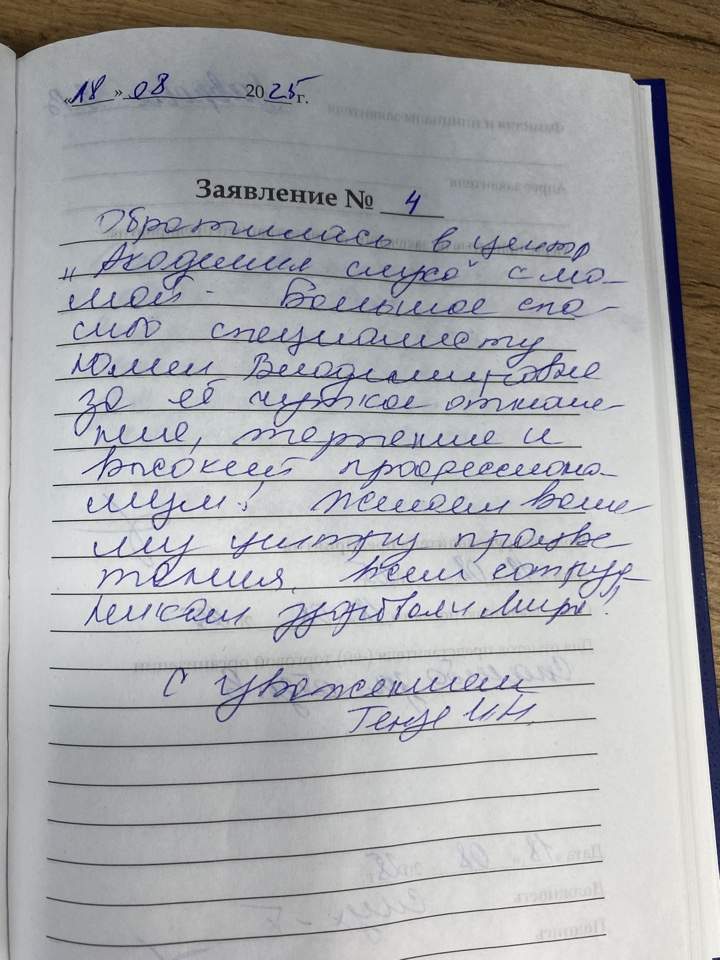 «18» 08 2025 г.
Заявление № 4
Обратилась в центр
"Академия слуха" с ма-
мой. Большое спа-
сибо специалисту
Юлии Владимировне
за её чуткое отноше-
ние, терпение и
высокий профессиона-
лизм! Желаем ваше-
му центру процве-
тания, всем сотруд-
никам здоровья и мира!
С уважением
Гензе И.Н.